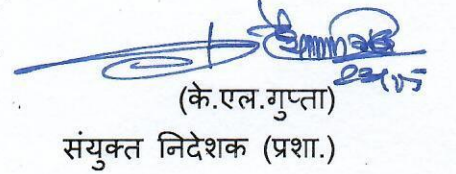 (के.एल.गुप्ता)
संयुक्त निदेशक (प्रशा.)